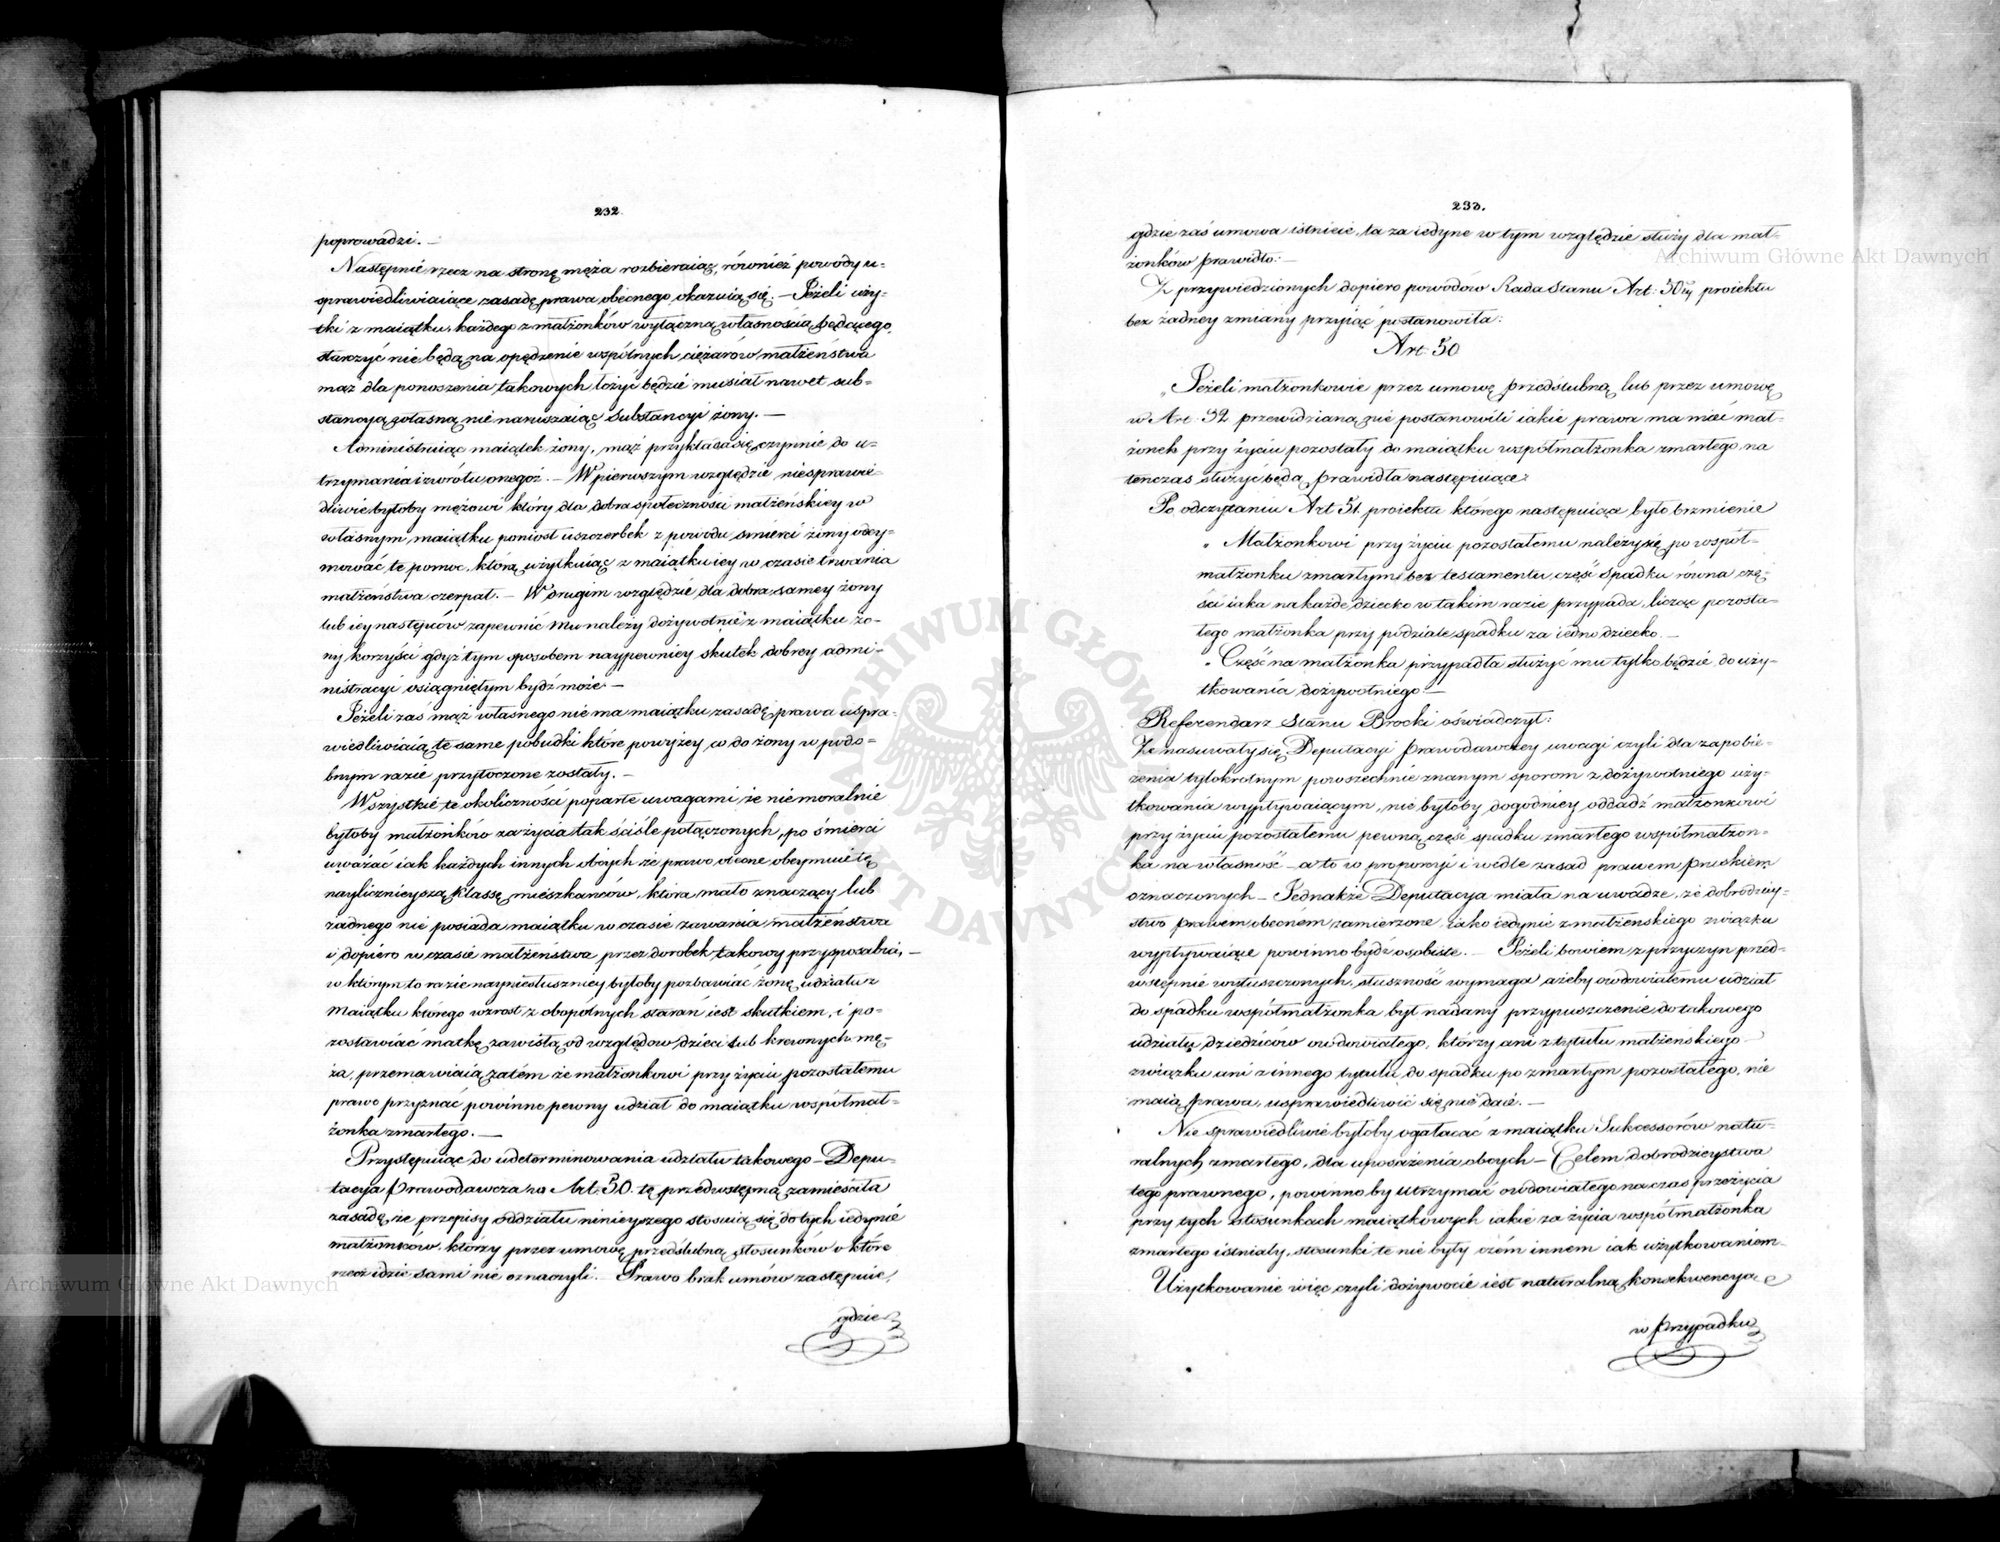 232.
poprowadzi. —
Następnie rzecz na stronę męża rozbieraiąc, również powody u-
sprawiedliwiaiące zasadę prawa obecnego okazuią się. — Jeżeli uży-
tki z maiątku, każdego z małżonków wyłączną własnością będącego,
starczyć nie będą na opędzenie wspólnych ciężarów małżeństwa
mąż dla ponoszenia takowych łożyć będzie musiał nawet sub-
stancyą własną nie naruszaiąc Substancyi żony. —
Administruiąc maiątek żony, mąż przykłada się czynnie do u-
trzymania i zwrótu onegoż. — W pierwszym względzie niesprawie-
dliwie byłoby mężowi który dla dobra społeczności małżeńskiey w
własnym maiątku poniosł uszczerbek z powodu śmierci żony odey-
mować te pomoc, którą użytkuiąc z maiątku iey w czasie trwania
małżeństwa czerpał. — W drugim względzie dla dobra samey żony
lub iey następców zapewnić mu należy dożywotnie z maiątku żo-
ny korzyści gdyż tym sposobem naypewniey skutek dobrey admi-
nistracyi osiągniętym bydź może. —
Jeżeli zaś mąż własnego nie ma maiątku zasadę prawa uspra-
wiedliwiaią te same pobudki które powyżey co do żony w podo-
bnym razie przytoczone zostały. —
Wszystkie te okoliczności poparte uwagami że niemoralnie
byłoby małżonków za życia tak ściśle połączonych, po śmierci
uważać iak każdych innych obcych że prawo obecne obeymuie tę
nayliczniejszą Klassę mieszkańców, która mało znaczący lub
żadnego nie posiada maiątku w czasie zawarcia małżeństwa
i dopiero w czasie małżeństwa przez dorobek takowy przysposabia, —
w którym to razie nayniesłuszniey byłoby pozbawiać żonę udziału z
Maiątku którego wzrost z obopólnych starań iest skutkiem, i po-
zostawiać matkę zawisłą od względów dzieci lub krewnych mę-
ża, przemawiaią zatém że małżonkowi przy życiu pozostałemu
prawo przyznać powinno pewny udział do maiątku współmał-
żonka zmarłego. —
Przystępuiąc do udeterminowania udziału takowego — Depu-
tacya Prawodawcza w Art: 50. tę przedwstępną zamieściła
zasadę, że przepisy oddziału niniejszego stosuią się do tych iedynie
małżonków, którzy przez umowę przedślubną stosunków o które
rzecz idzie sami nie oznaczyli. — Prawo brak umów zastępuie,
gdzie
233.
gdzie zaś umowa istnieie, ta za iedyne w tym względzie służy dla mał-
żonków prawidło: —
Z przywiedzionych dopiero powodów Rada Stanu Art: 50ty proiektu
bez żadney zmiany przyiąć postanowiła:
Art. 50
„Jeżeli małżonkowie przez umowę przedślubną lub przez umowę
w Art: 32 przewidzianą nie postanowili iakie prawa ma mieć mał-
żonek przy życiu pozostały do maiątku współmałżonka zmarłego na
tenczas służyć będą prawidła następuiące:
Po odczytaniu Art 51. proiektu którego następuiące było brzmienie
„Małżonkowi przy życiu pozostałemu należy się po współ-
małżonku zmarłym bez testamentu, część spadku równa czę-
ści iaka na każde dziecko w takim razie przypada, licząc pozosta-
łego małżonka przy podziale spadku za iedno dziecko. —
„Część na małżonka przypadła służyć mu tylko będzie do uży-
tkowania dożywotniego. —
Referendarz Stanu Brocki oświadczył:
Że nasuwały się Deputacyi Prawodawczey uwagi czyli dla zapobie-
żenia tylokrotnym powszechnie znanym sporom z dożywotniego uży-
tkowania wypływaiącym, nie byłoby dogodniey oddadź małżonkowi
przy życiu pozostałemu pewną część spadku zmarłego współmałżon-
ka na własność — a to w proporcyi i wedle zasad prawem pruskiem
oznaczonych — Jednakże Deputacya miała na uwadze, że dobrodziey-
stwo prawem obecnem zamierzone, iako iedynie z małżeńskiego związku
wypływaiące powinno bydź osobiste. — Jeżeli bowiem z przyczyn przed-
wstępnie wyłuszczonych, słuszność wymaga ażeby owdowiałemu udział
do spadku współmałżonka był nadany przypuszczenie do takowego
udziału dziedziców owdowiałego, którzy ani z tytułu małżeńskiego
związku ani z innego tytułu do spadku po zmarłym pozostałego, nie
maią prawa, usprawiedliwić się nie daie. —
Niesprawiedliwie byłoby ogałacać z maiątku Sukcessorów natu-
ralnych zmarłego, dla uposażenia obcych — Celem dobrodzieystwa
tego prawnego, powinno by utrzymać owdowiałego na czas przeżycia
przy tych stosunkach maiątkowych iakie za życia współmałżonka
zmarłego istniały, stosunki te nie były czém innem iak użytkowaniem
Użytkowanie więc czyli dożywocie iest naturalną konsekwencyą
w przypadku
Archiwum Główne Akt Dawnych
Archiwum Główne Akt Dawnych
ARCHIWUM GŁÓWNE AKT DAWNYCH